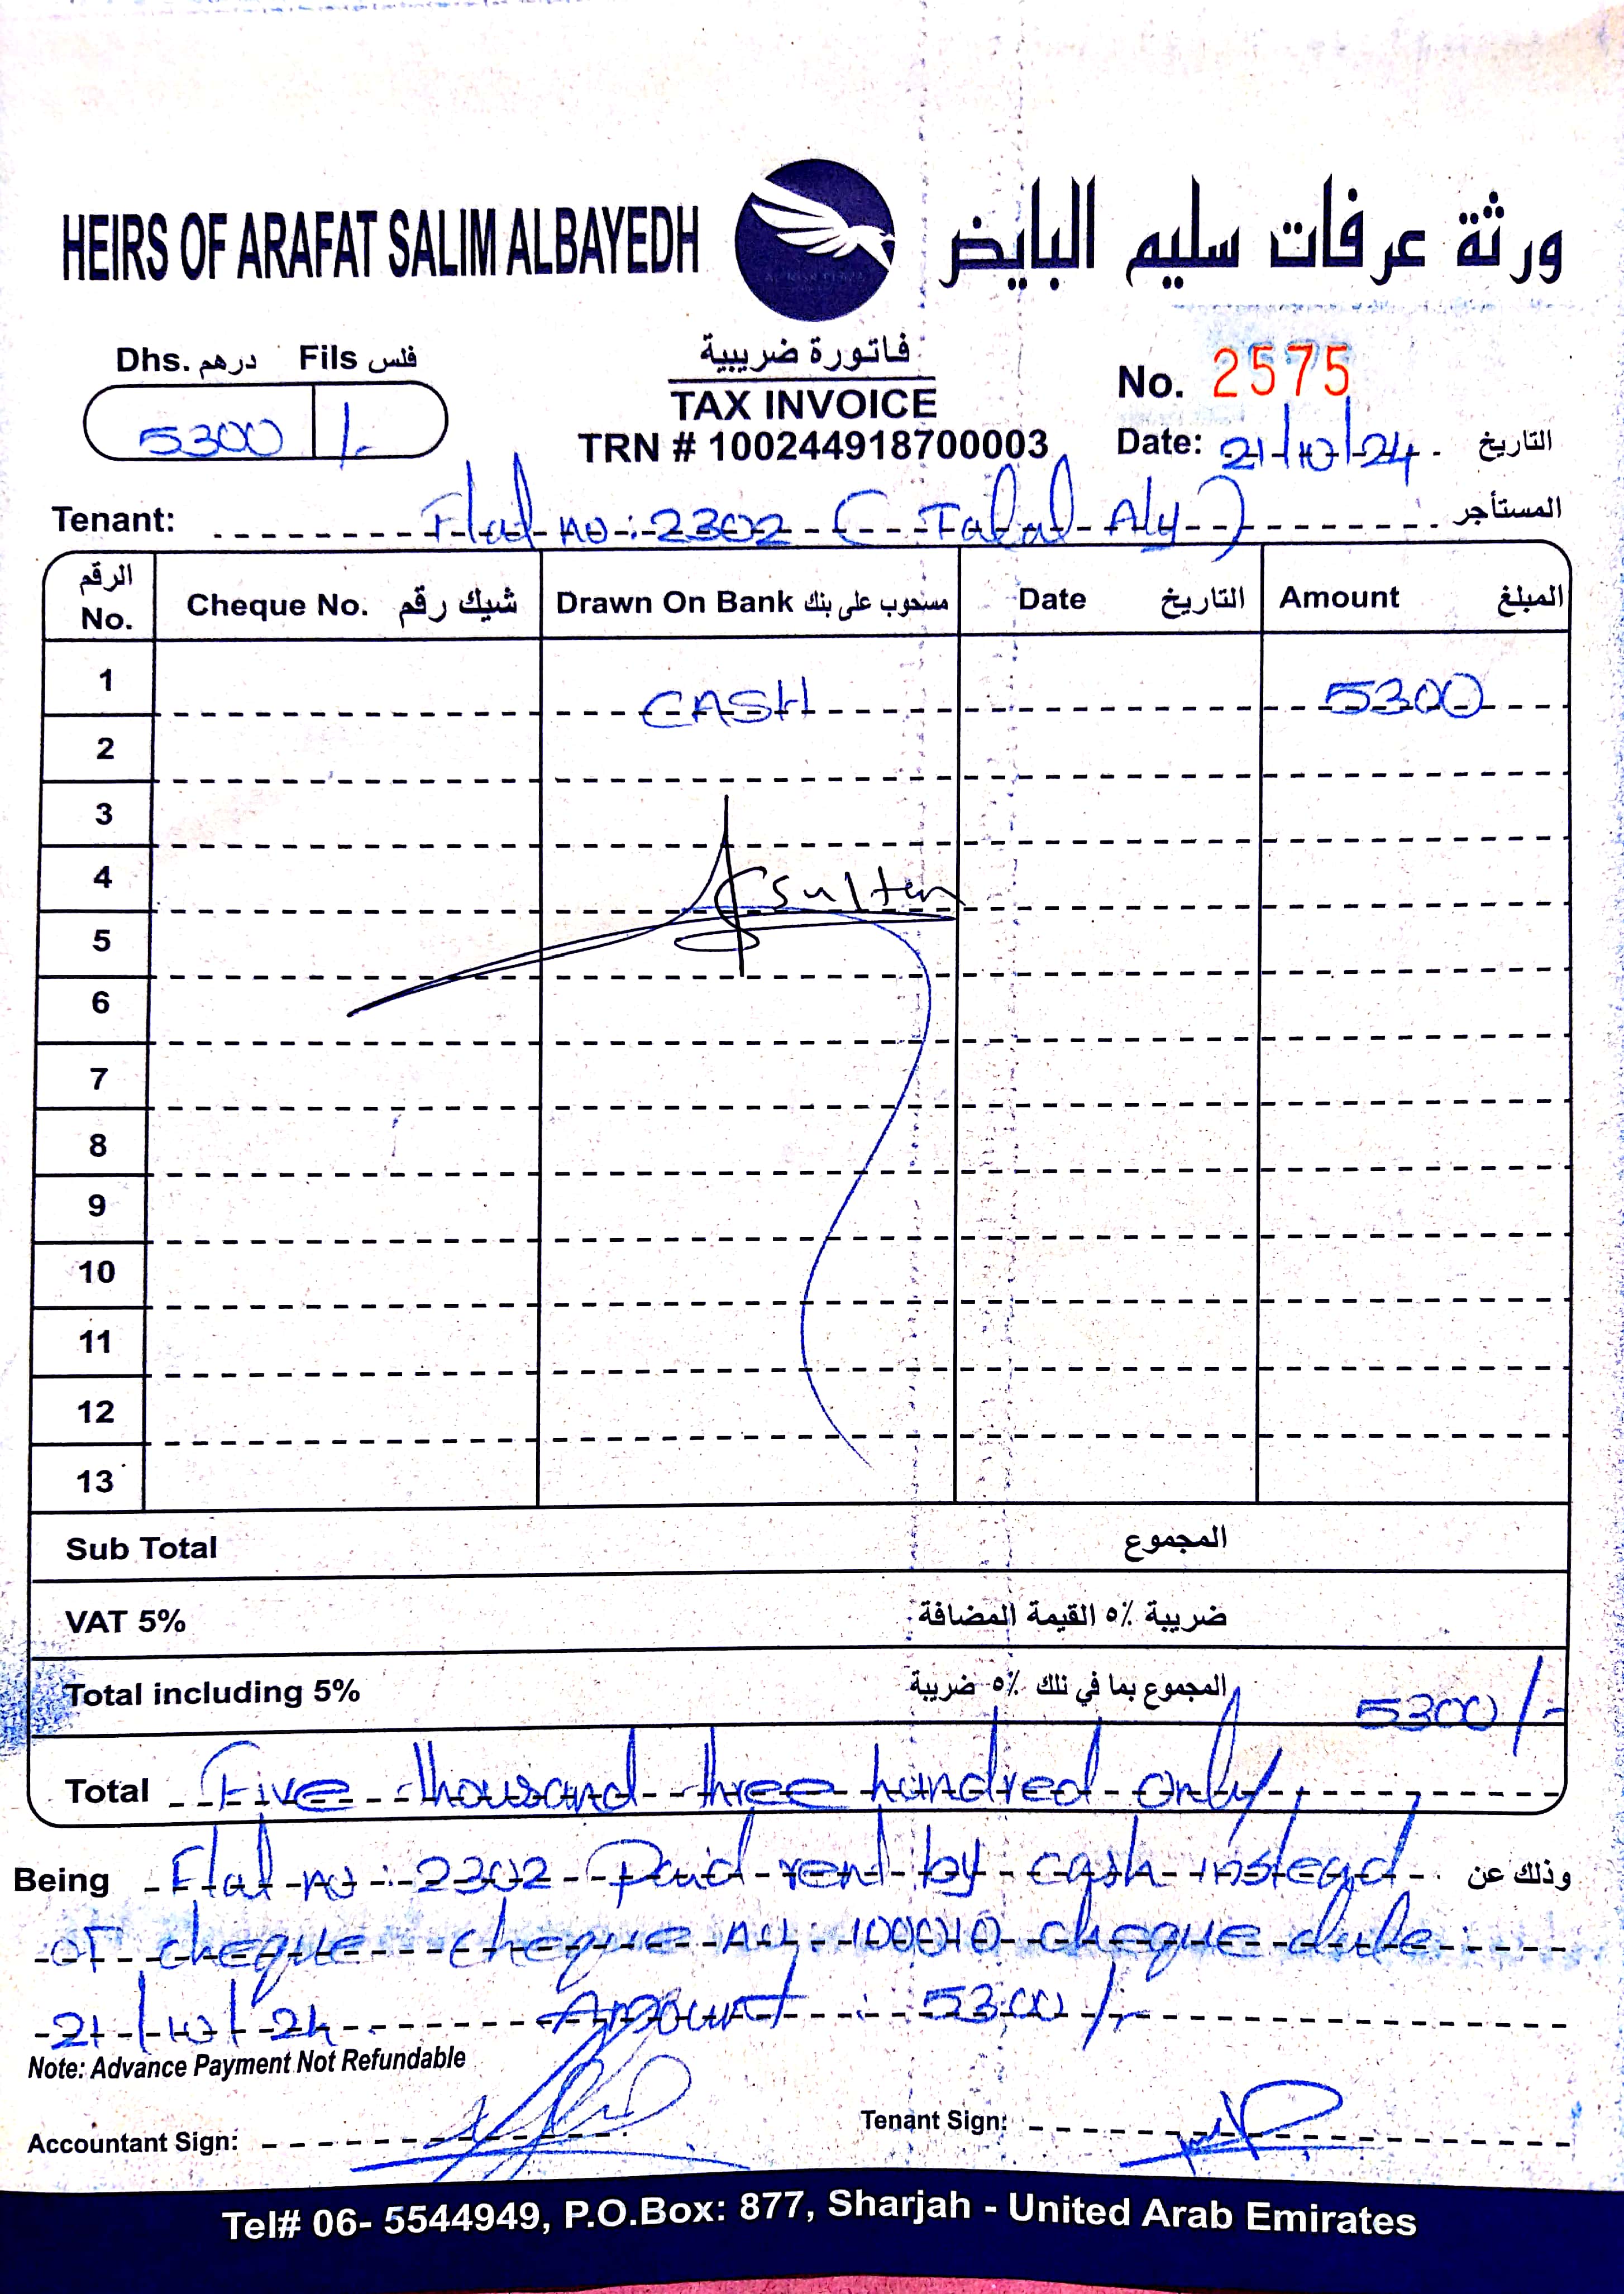 HEIRS OF ARAFAT SALIM ALBAYEDH ورثة عرفات سليم البايض
Dhs. درهم Fils فلس
5300 /-
فاتورة ضريبية
TAX INVOICE
TRN # 100244918700003
No. 2575
Date: 21/10/24 التاريخ
Tenant: Flat no: 2302 (Talal Aly) المستأجر
الرقم No. Cheque No. شيك رقم Drawn On Bank مسحوب على بنك Date التاريخ Amount المبلغ
1 CASH 5300
2
3
4 Sultan
5
6
7
8
9
10
11
12
13
Sub Total المجموع
VAT 5% ضريبة ٥٪ القيمة المضافة
Total including 5% المجموع بما في تلك ٥٪ ضريبة 5300/-
Total Five thousand three hundred only
Being Flat no: 2302 Paid rent by cash instead وذلك عن
of cheque cheque no: 100010 cheque date:
21/10/24. Amount: 5300/-
Note: Advance Payment Not Refundable
Accountant Sign:
Tenant Sign:
Tel# 06- 5544949, P.O.Box: 877, Sharjah - United Arab Emirates